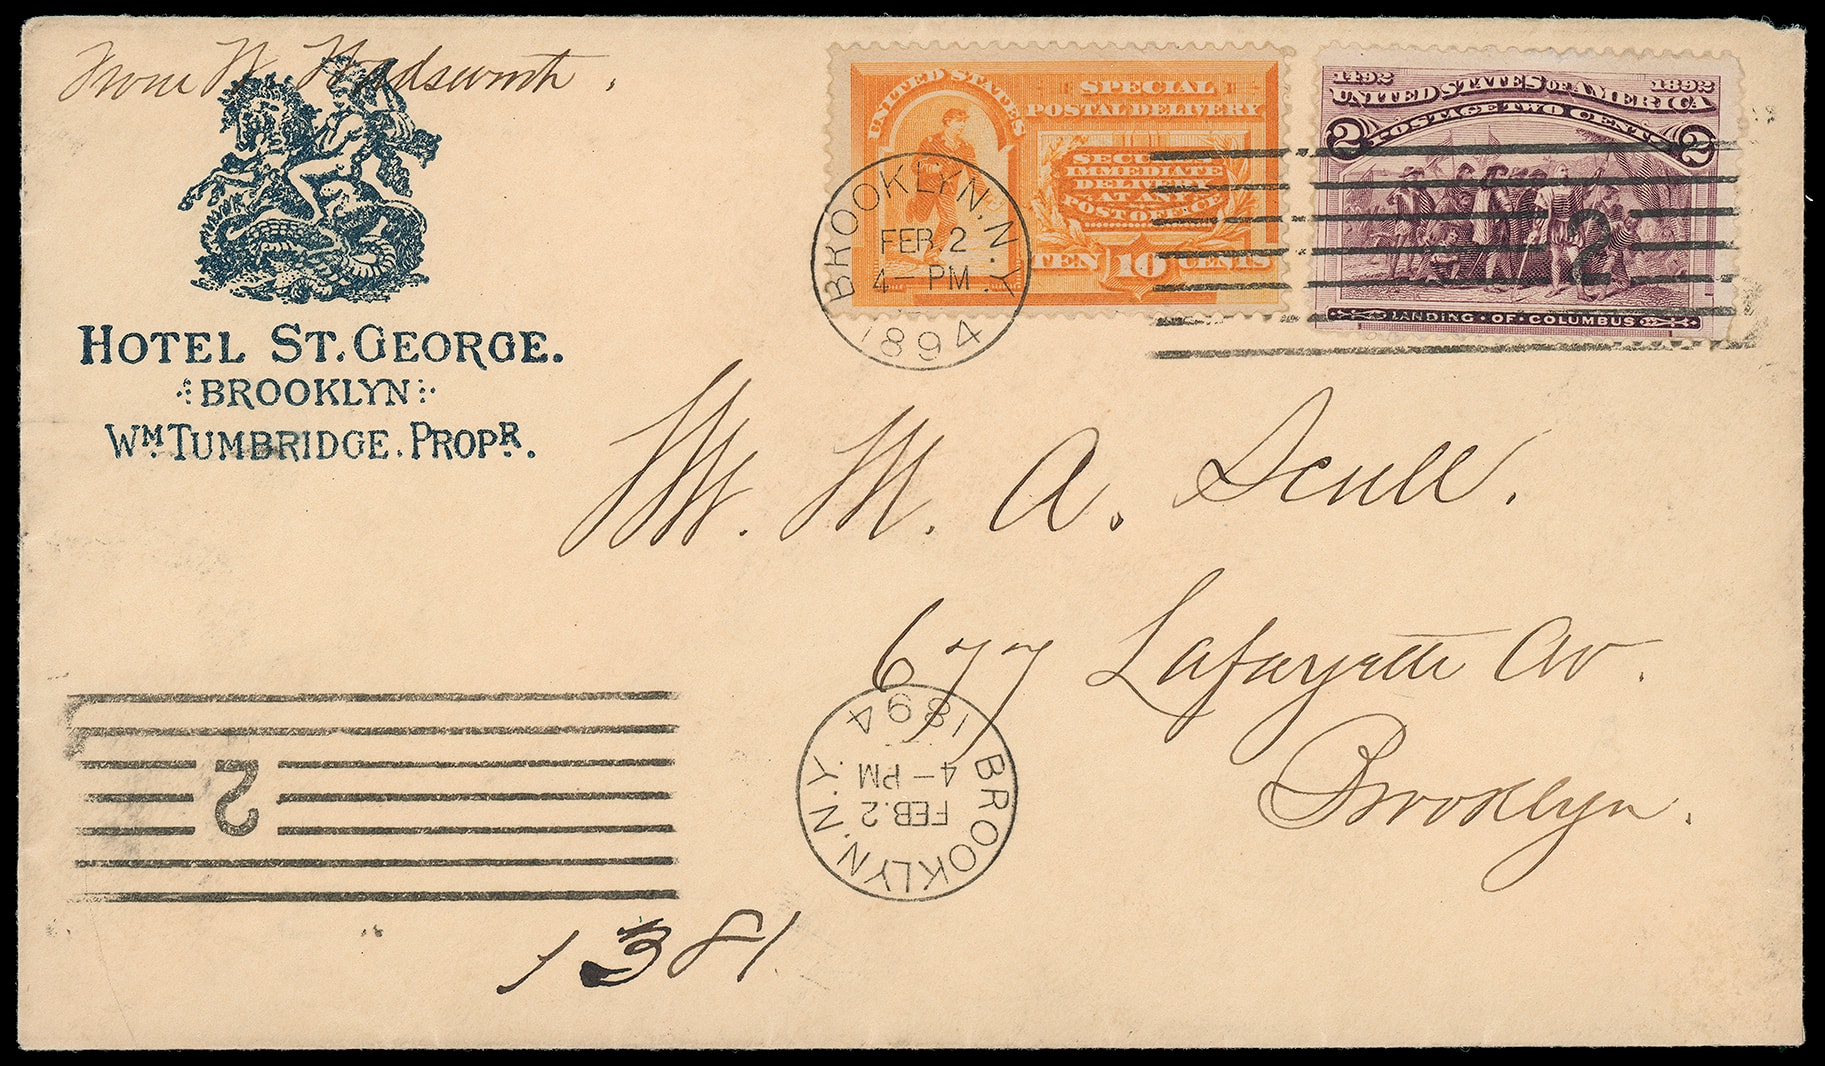 From W. Wadsworth.
HOTEL ST. GEORGE.
BROOKLYN
WM TUMBRIDGE. PROPR.
UNITED STATES
SPECIAL
POSTAL DELIVERY
SECURES
IMMEDIATE
DELIVERY
AT ANY
POST OFFICE
TEN 10 CENTS
1492 1892
UNITED STATES OF AMERICA
POSTAGE TWO CENTS
2 2
LANDING · OF · COLUMBUS
BROOKLYN. N.Y.
FEB. 2
4 — PM
1894
2
Mr. M. A. Scull.
677 Lafayette Av.
Brooklyn.
BROOKLYN. N.Y.
FEB. 2
4 — PM
1894
2
1381